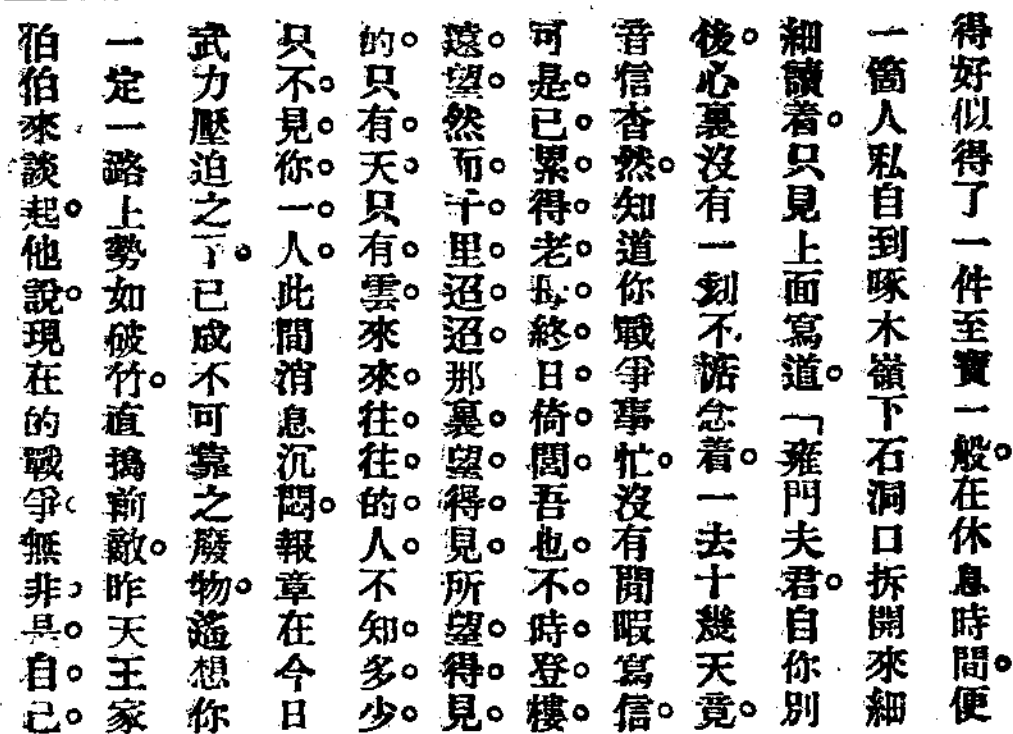 得好似得了一件至寶一般。在休息時間。便
一箇人私自到啄木嶺下石洞口拆開來細
細讀着。只見上面寫道。「雍門夫君。自你別
後。心裏沒有一刻不惦念着。一去十幾天竟
音信杳然。知道你戰爭事忙。沒有閒暇寫信。
可是已累得老終日倚閭吾也不時登樓
遠望然而千里迢迢那裏望得見所望得見
的只有天只有雲來來往往的人不知多少
只不見你一人此間消息沉悶。報章在今日
武力壓迫之下。已成不可靠之廢物。遙想你
一定一路上勢如破竹。直搗前敵。昨天王家
伯伯來談起。他說。現在的戰爭無非是自己